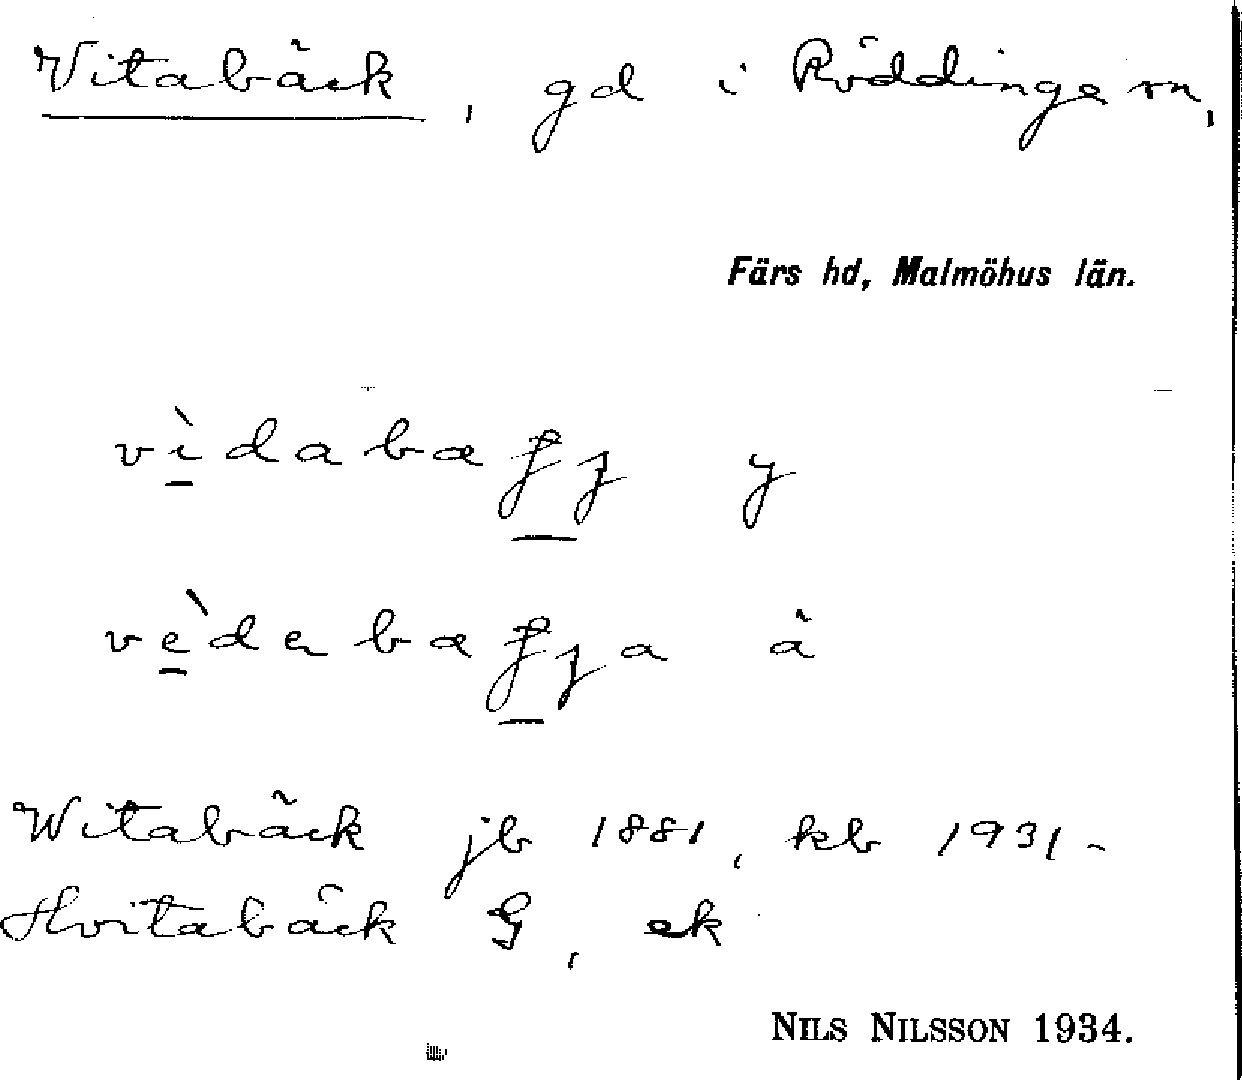 Vitabäck, gd i Röddinge sn,
Färs hd, Malmöhus län.
y
ä
Witabäck jb 1881, kb 1931-
Hvitabäck G, ek
NILS NILSSON 1934.